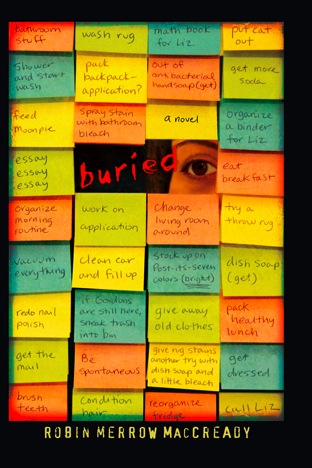 bathroom stuff
wash rug
math book for Liz
put cat out
shower and start wash
pack backpack— application?
out of antibacterial handsoap (get)
get more soda
feed moonpie
spray stain with bathroom bleach
a novel
organize a binder for Liz
essay essay essay
buried
eat breakfast
organize morning routine
work on application
change living room around
try a throw rug
vacuum everything
clean car and fill up
stock up on Post-its-seven colors (bright)
dish soap (get)
redo nail polish
if Gordons are still here, sneak trash into bin
give away old clothes
pack healthy lunch
get the mail
Be spontaneous
give rug stains another try with dish soap and a little bleach
get dressed
brush teeth
condition hair
reorganize fridge
call Liz
ROBIN MERROW MACCREADY